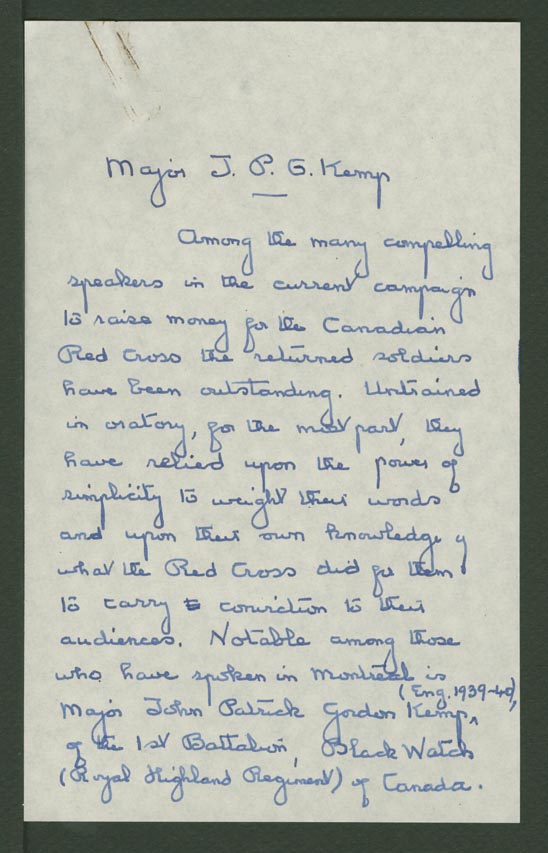 Major J. P. G. Kemp
Among the many compelling
speakers in the current campaign
to raise money for the Canadian
Red Cross the returned soldiers
have been outstanding. Untrained
in oratory, for the most part, they
have relied upon the power of
simplicity to weight their words
and upon their own knowledge of
what the Red Cross did for them
to carry conviction to their
audiences. Notable among those
who have spoken in Montreal is
(Eng. 1939-40),
Major John Patrick Gordon Kemp
of the 1st Battalion, Black Watch
(Royal Highland Regiment) of Canada.